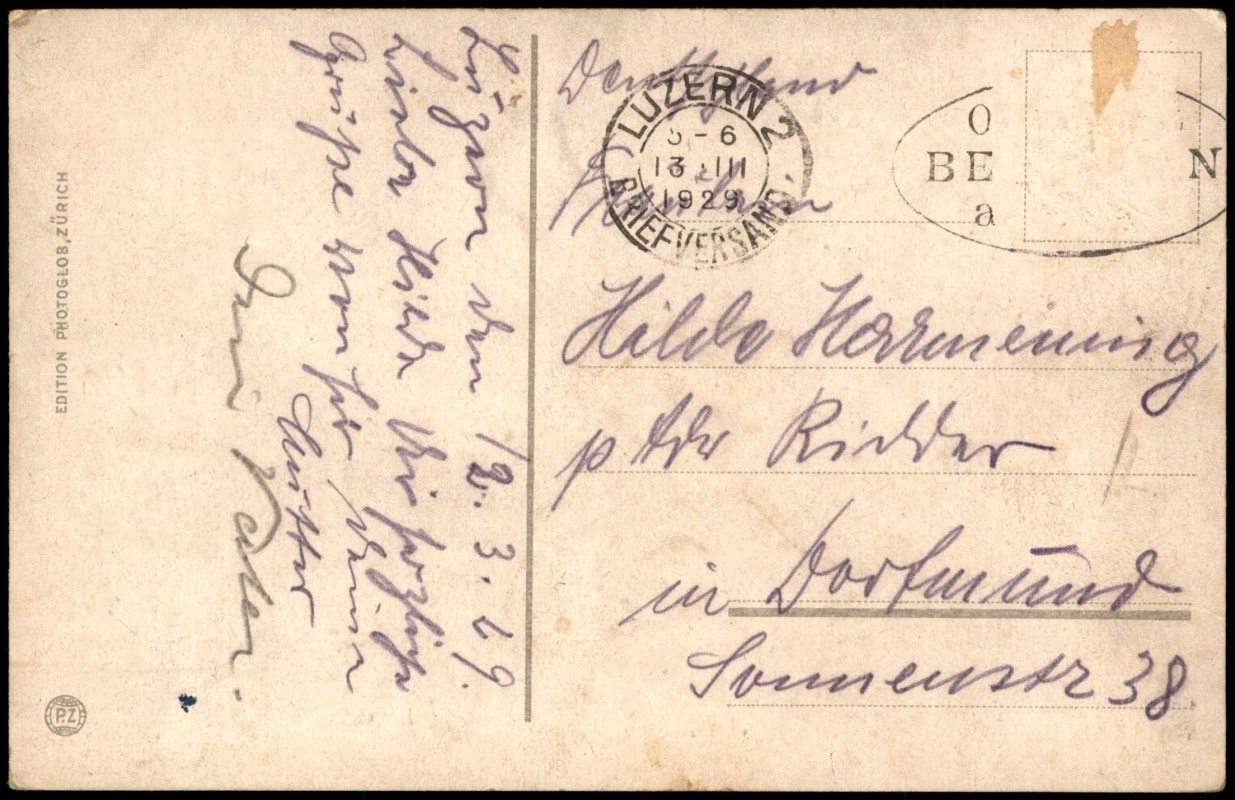 Luzern den 12. 3. 29.
Liebe Hilde die herzliche
Grüße von hir deine
Mutter
Dein Vater.
EDITION PHOTOGLOB, ZÜRICH
P.Z
Deutschland
Fräulein
Hilde Harmening
p Adr Ridder
in Dortmund
Sonnenstr 38
LUZERN 2
-6
13.III
1929
BRIEFVERSAND
O
BE N
a